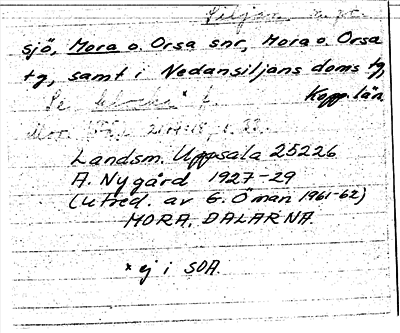 Siljan
sjö, Mora o. Orsa snr, Mora o. Orsa
tg, samt i Nedansiljans doms. tg,
Se Kopp. län.
Landsm. Uppsala 25226
A. Nygård 1927-29
(utred. av G. Öman 1961-62)
MORA, DALARNA.
* ej i SOA.